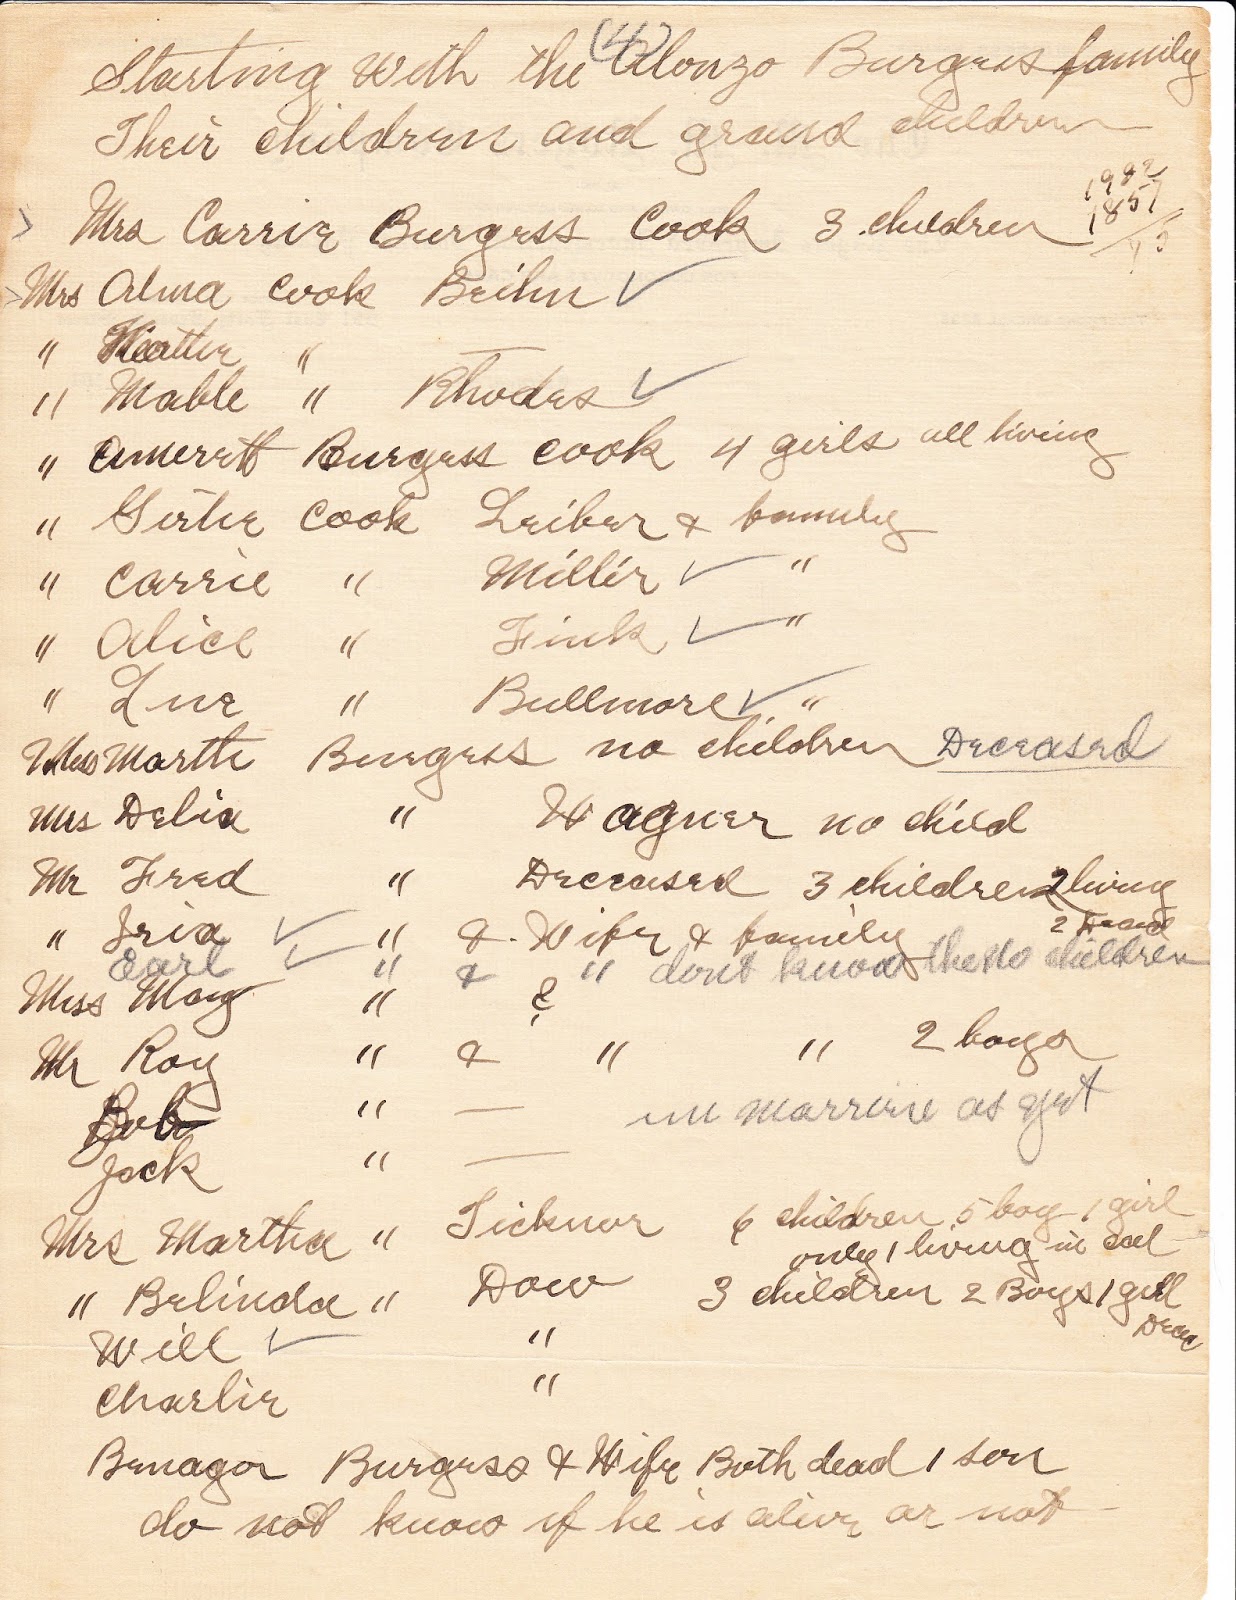 (4)
Starting with the Alonzo Burgess family
Their children and grand children
Mrs Carrie Burgess Cook 3 children
1857
Mrs Alma Cook Beihn ✓
" Hattie " —
" Mable " Rhodes ✓
" Amerett Burgess Cook 4 girls all living
" Girtie Cook Leiber & family
" Carrie " Miller ✓ "
" Alice " Fink ✓ "
" Lue " Bullmore ✓ "
Miss Marth Burgess no children Deceased
Mrs Delia " Wagner no child
Mr Fred " Deceased 3 children 2 living
" Iria ✓ " & Wife & family 2 Dead
Earl ✓ " & " dont know the No children
Miss May " &
Mr Roy " & " " 2 boys
Bob " — un marrine as yet
Jack " —
Mrs Martha " Ticknor 6 children 5 boy 1 girl
only 1 living in Cal
" Belinda " Dow 3 children 2 Boys 1 girl
Will ✓ "
Charlie "
Benagor Burgess & Wife Both dead 1 son
do not know if he is alive or not